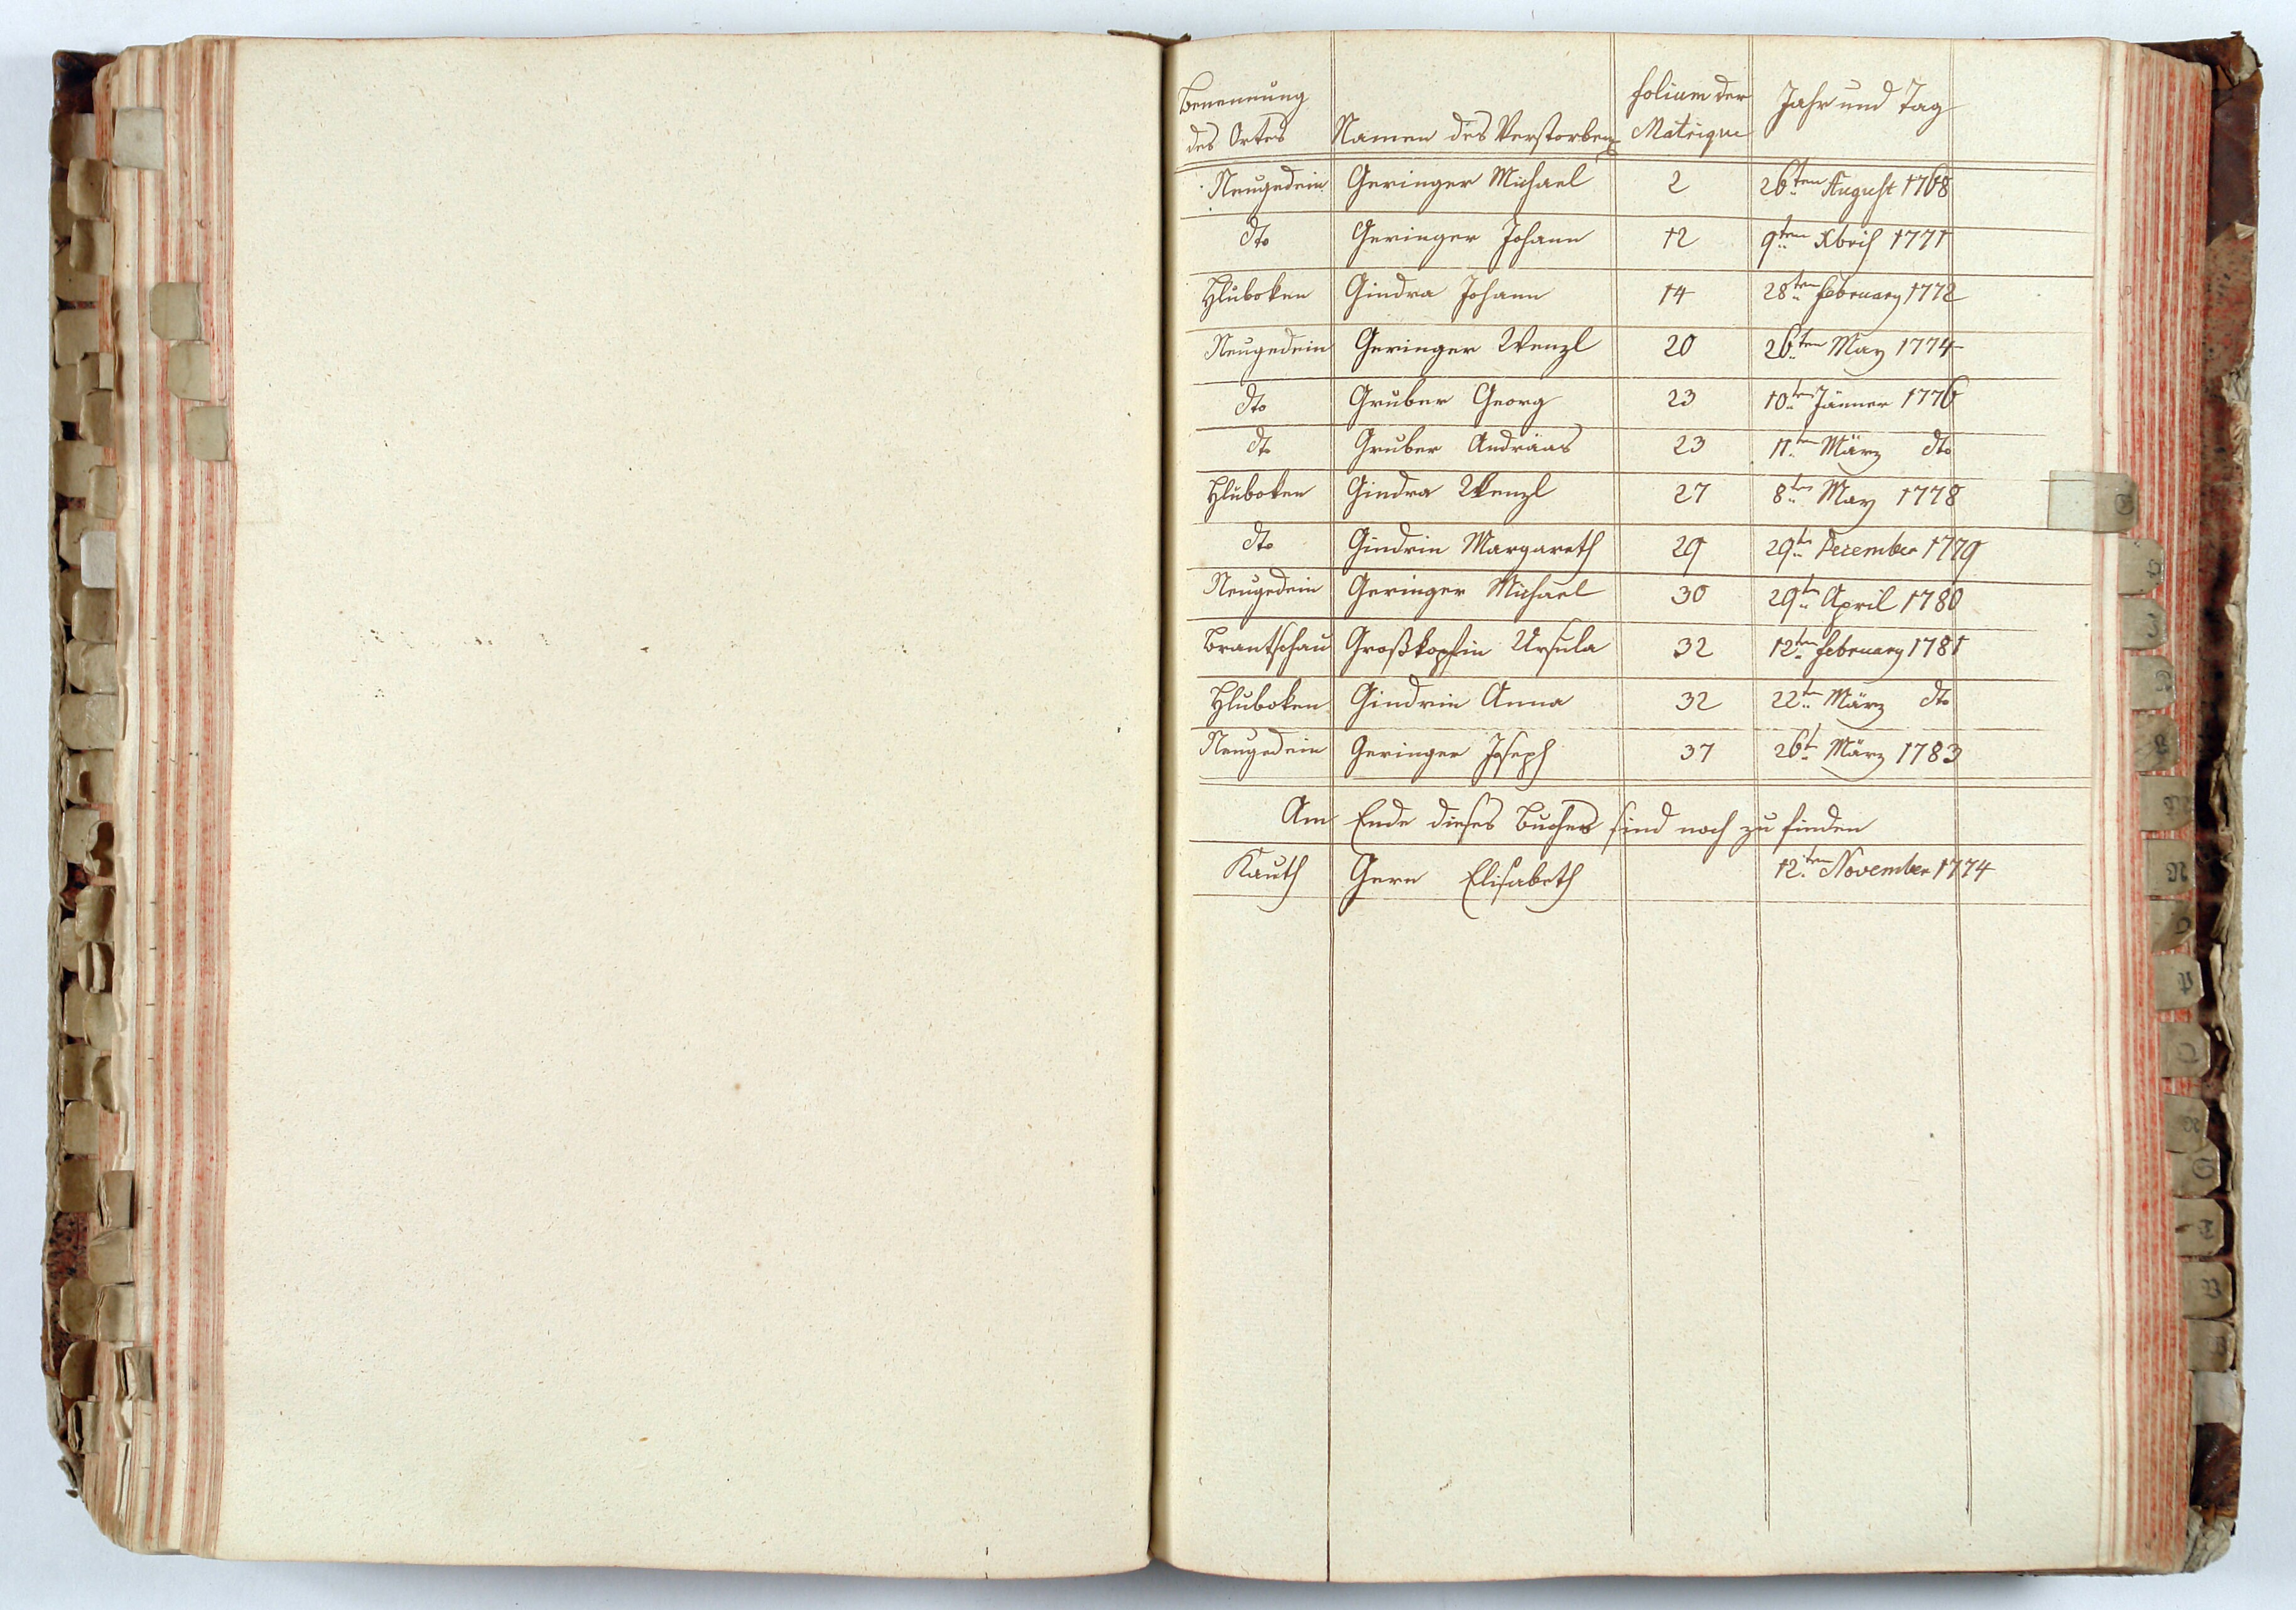 Benennung des Ortes | Namen des Verstorben | folium der Matrique | Jahr und Tag
Neugedein | Geringer Michael | 2 | 26ten August 1768
dto | Geringer Johann | 12 | 9ten Xbris 1771
Hluboken | Gindra Johann | 14 | 28ten february 1772
Neugedein | Geringer Wenzl | 20 | 26ten May 1774
dto | Gruber Georg | 23 | 10ten Jänner 1776
dto | Gruber Andräas | 23 | 11ten März dto
Hluboken | Gindra Wenzl | 27 | 8ten May 1778
dto | Gindrin Margareth | 29 | 29tn December 1779
Neugedein | Geringer Michael | 30 | 29tn April 1780
Brantschau | Großkopfin Ursula | 32 | 12ten february 1781
Hluboken | Gindrin Anna | 32 | 22tn März dto
Neugedein | Geringer Joseph | 37 | 26t März 1783
Am Ende dieses Buches sind noch zu finden
Kauth | Gern Elisabeth | 12ten November 1774